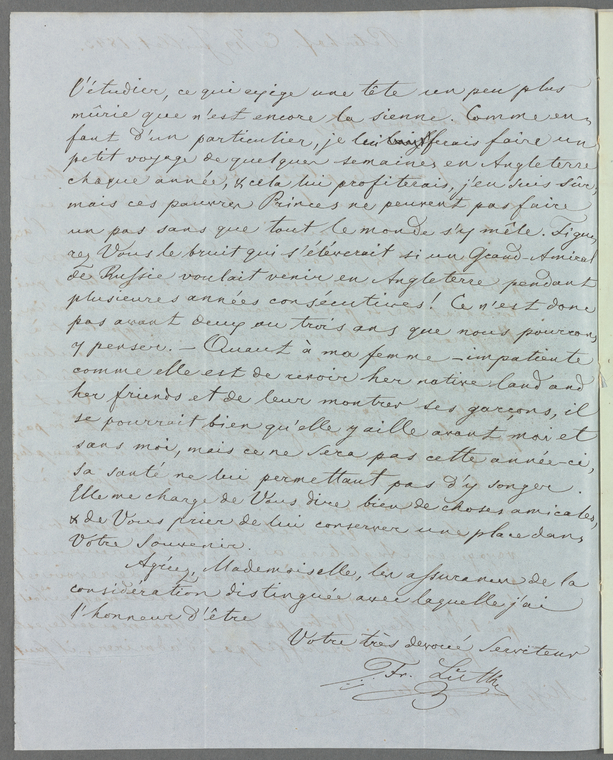 l'étudier, ce qui exige une tête un peu plus
mûrie que n'est encore la sienne. Comme en-
fant d'un particulier, je lui ferais faire un
petit voyage de quelques semaines en Angleterre
chaque année, & cela lui profiterais, j'en suis sûr,
mais ces pauvres Princes ne peuvent pas faire
un pas sans que tout le monde s'y mêle. Figu-
rez Vous le bruit qui s'élèverait si un Grand-Amiral
de Russie voulait venir en Angleterre pendant
plusieures années consécutives! Ce n'est donc
pas avant deux ou trois ans que nous pourrons
y penser. — Quant à ma femme — impatiente
comme elle est de revoir her native land and
her friends et de leur montrer ses garçons, il
se pourrait bien qu'elle y aille avant moi et
sans moi, mais ce ne sera pas cette année-ci,
sa santé ne lui permettant pas d'y songer.
Elle me charge de Vous dire bien de choses amicales,
& de Vous prier de lui conserver une place dans
Votre souvenir.
Agréez, Mademoiselle, les assurances de la
considération distinguée avec laquelle j'ai
l'honneur d'être
Votre très devoué Serviteur
Fr. Lütke